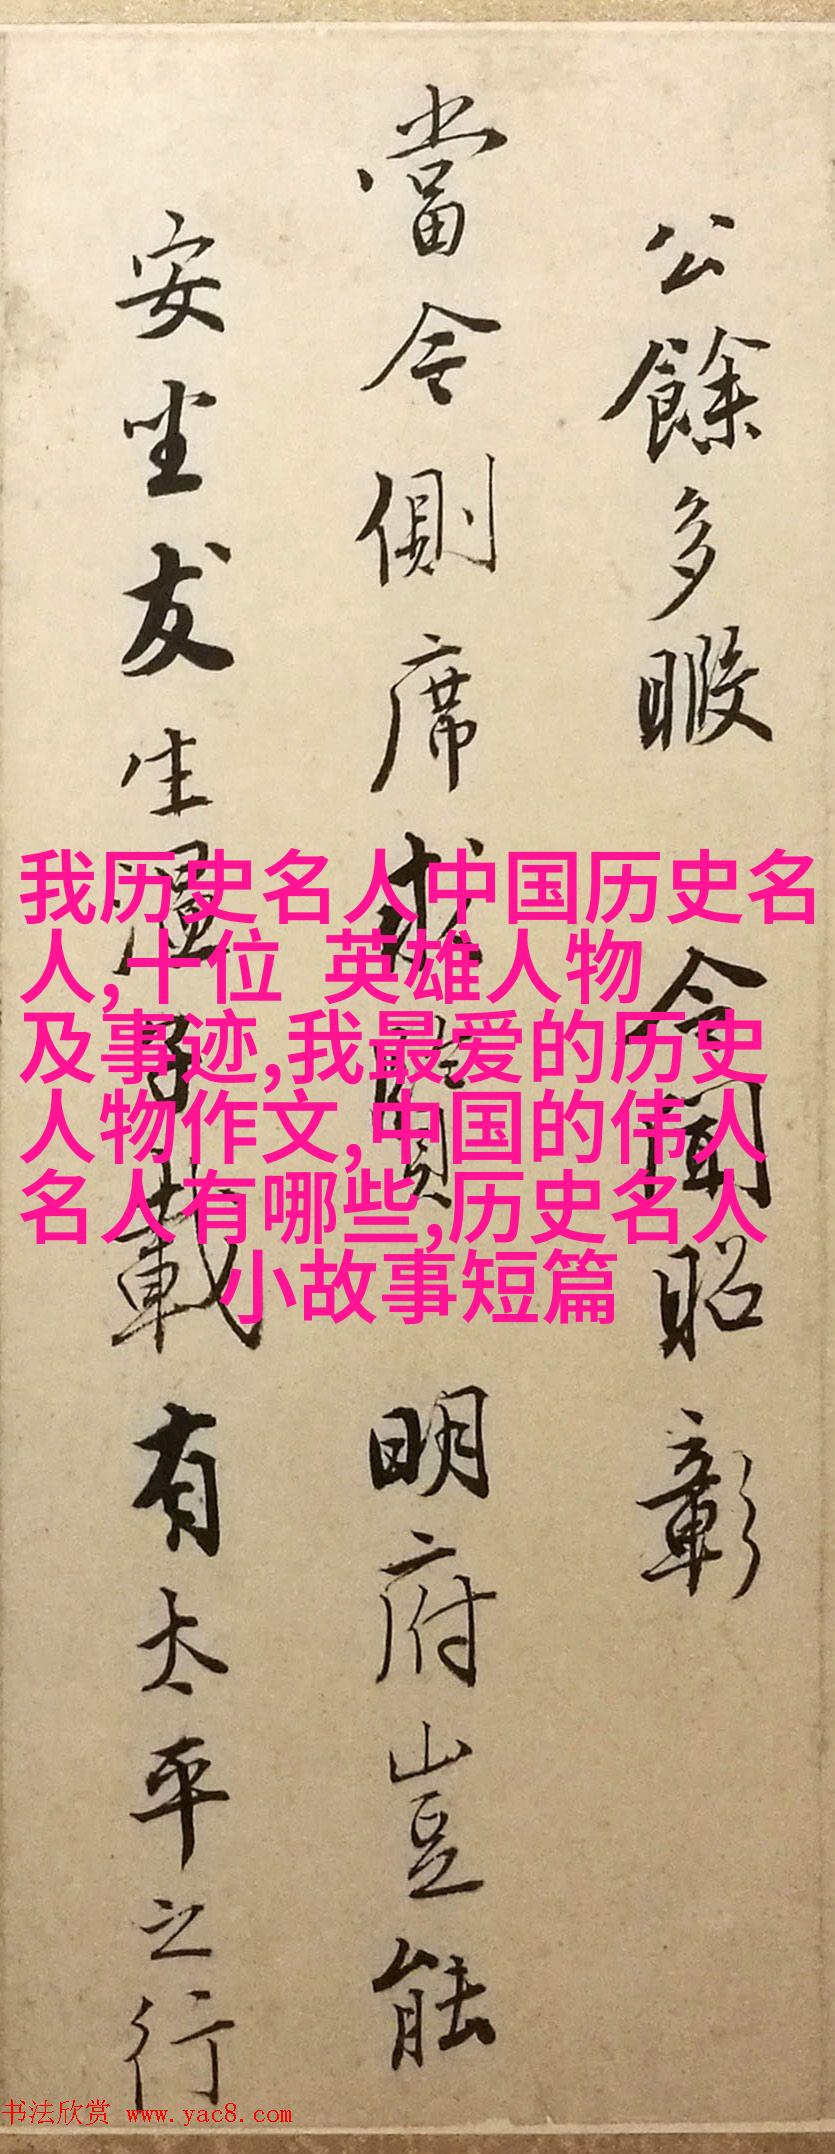 公餘多暇 令聞昭彰
當今側席求賢 明府豈能
安坐友生溫載有太平之行
我历史名人中国历史名
人,十位 英雄人物
及事迹,我最爱的历史
人物作文,中国的伟人
名人有哪些,历史名人
小故事短篇
书法欣赏 www.yac8.com